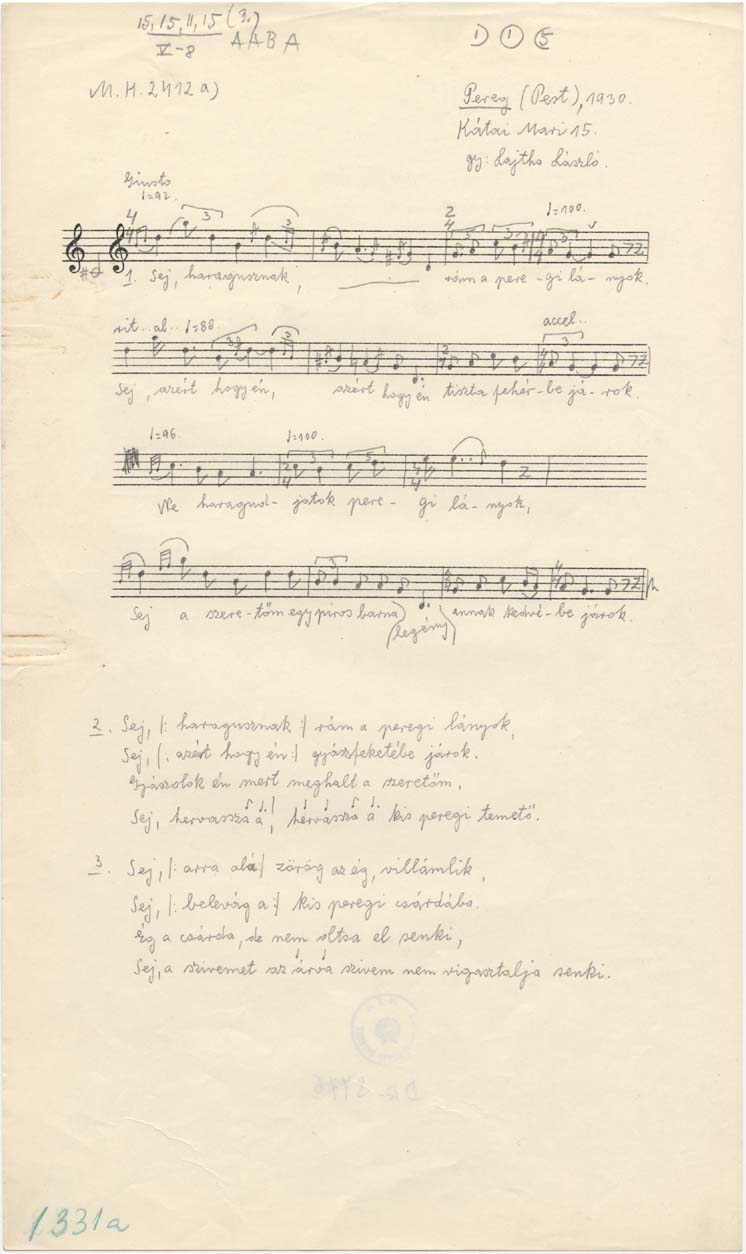 15, 15, 11, 15 (3.)
V-8 A A B A
1) ① ⑤
M. H. 2412 a)
Pereg (Pest), 1930.
Kátai Mari 15.
gy: Lajtha László.
Giusto
♩=92.
3 3
2/4 3 3 ♩=100. 4/4 3
1. Sej, haragusznak, rám a pere - gi lá - nyok.
rit. al. ♩=88. accel.
Sej, azért hogy én, azért hogy én tiszta fehér-be já-rok.
♩=96. ♩=100.
Ne haragud-jatok pere - gi lá-nyok,
Sej a szere-tőm egy piros barna (legény) annak kedvé-be járok.
2. Sej, |: haragusznak :| rám a peregi lányok,
Sej, |: azért hogy én :| gyászfeketébe járok.
Gyászolok én mert meghalt a szeretőm,
Sej, hervassza a, hervassza a kis peregi temető.
3. Sej, |: arra alá :| zörög az ég, villámlik,
Sej, |: belevág a :| kis peregi csárdába.
Ég a csárda, de nem oltsa el senki,
Sej, a szivemet az árva szivem nem vigasztalja senki.
1331a